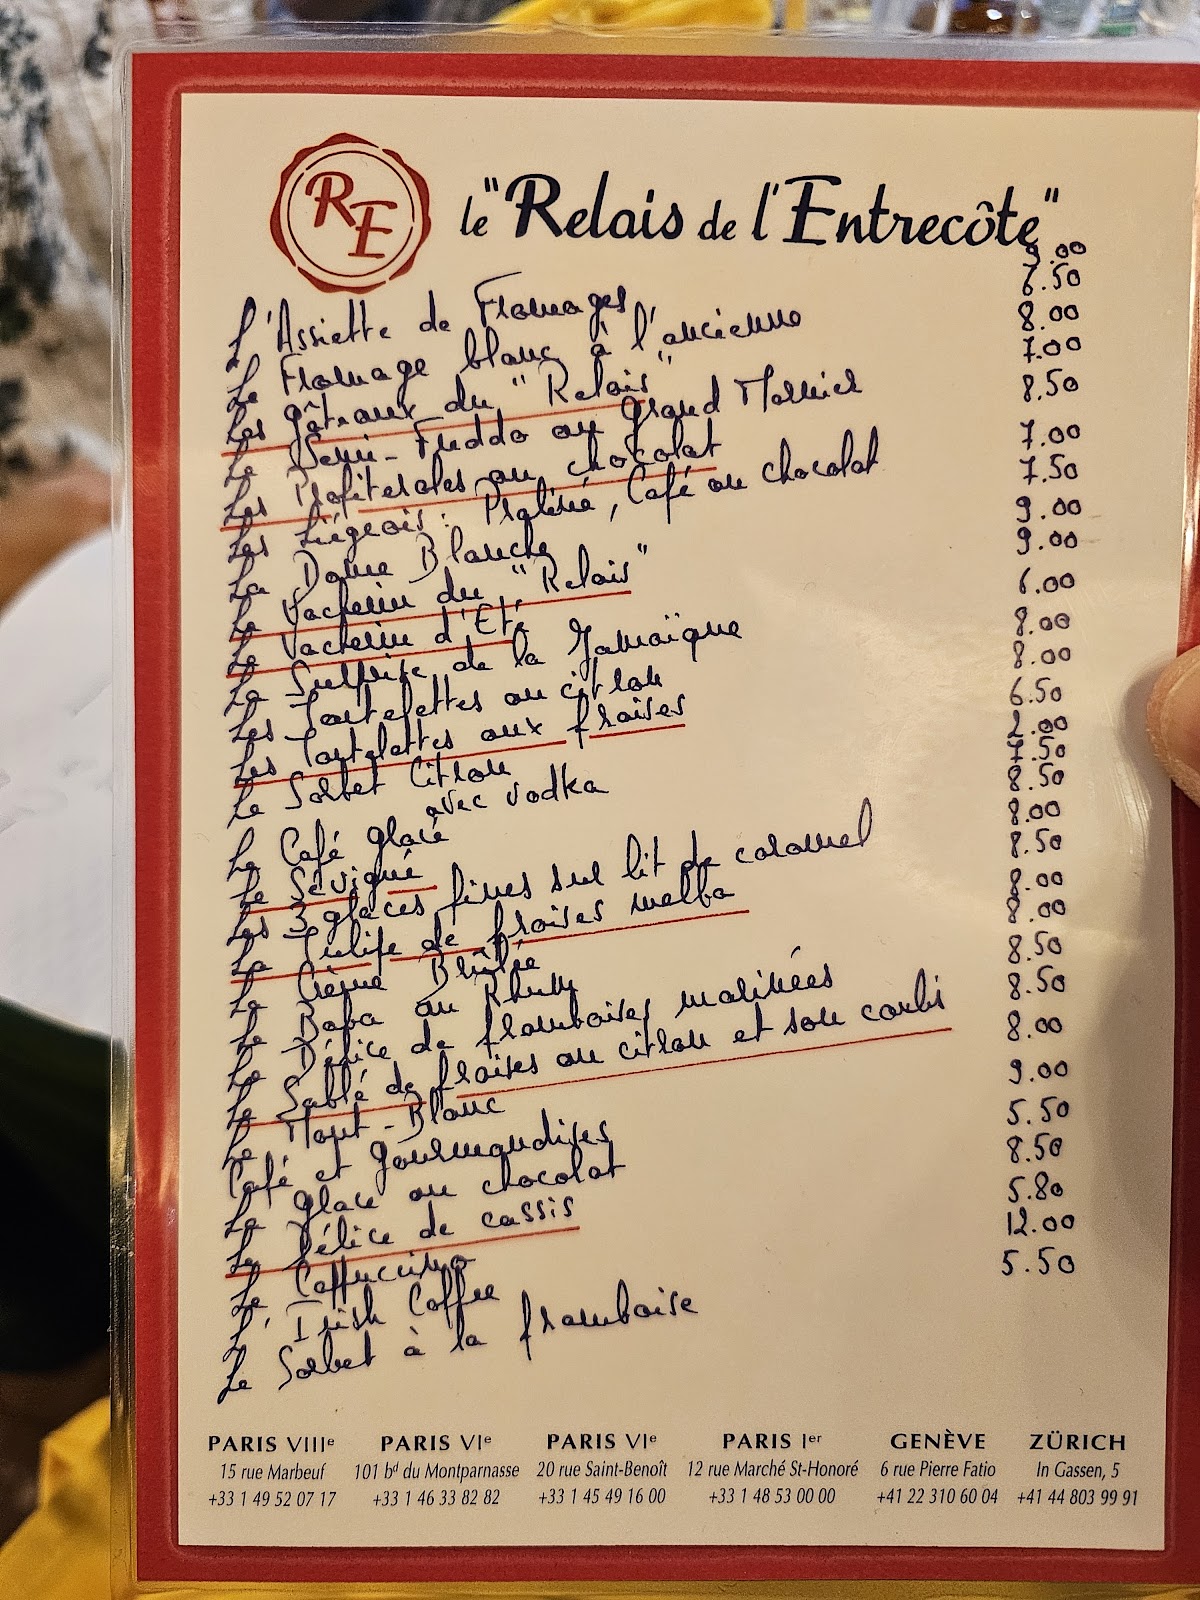 RE
le "Relais de l'Entrecôte"
L'Assiette de Fromages 9.00
Le Fromage blanc à l'ancienne 6.50
Les gâteaux du "Relais" 8.00
Le Semi-Freddo au grand Marnier 7.00
Les Profiteroles au chocolat 8.50
Les Liégeois : Praliné, Café ou chocolat 7.00
La Dame Blanche 7.50
Le Vacherin du "Relais" 9.00
Le Vacherin d'Eté 9.00
La Surprise de la Jamaïque 6.00
Les Tartelettes au citron 8.00
Les Tartelettes aux fraises 8.00
Le Sorbet Citron 6.50
avec vodka 2.00
Le Café glacé 7.50
Le Sévigné 8.50
Les 3 glaces fines sur lit de caramel 8.00
La Tulipe de fraises melba 8.50
La Crème Brûlée 8.00
Le Baba au Rhum 8.00
Le Délice de framboises marinées 8.50
Le Sablé de fraises au citron et son coulis 8.50
Le Mont-Blanc 8.00
Café et gourmandises 9.00
La glace au chocolat 5.50
Le Délice de cassis 8.50
Le Cappuccino 5.80
L'Irish Coffee 12.00
Le Sorbet à la framboise 5.50
PARIS VIIIe PARIS VIe PARIS VIe PARIS Ier GENÈVE ZÜRICH
15 rue Marbeuf 101 bd du Montparnasse 20 rue Saint-Benoît 12 rue Marché St-Honoré 6 rue Pierre Fatio In Gassen, 5
+33 1 49 52 07 17 +33 1 46 33 82 82 +33 1 45 49 16 00 +33 1 48 53 00 00 +41 22 310 60 04 +41 44 803 99 91